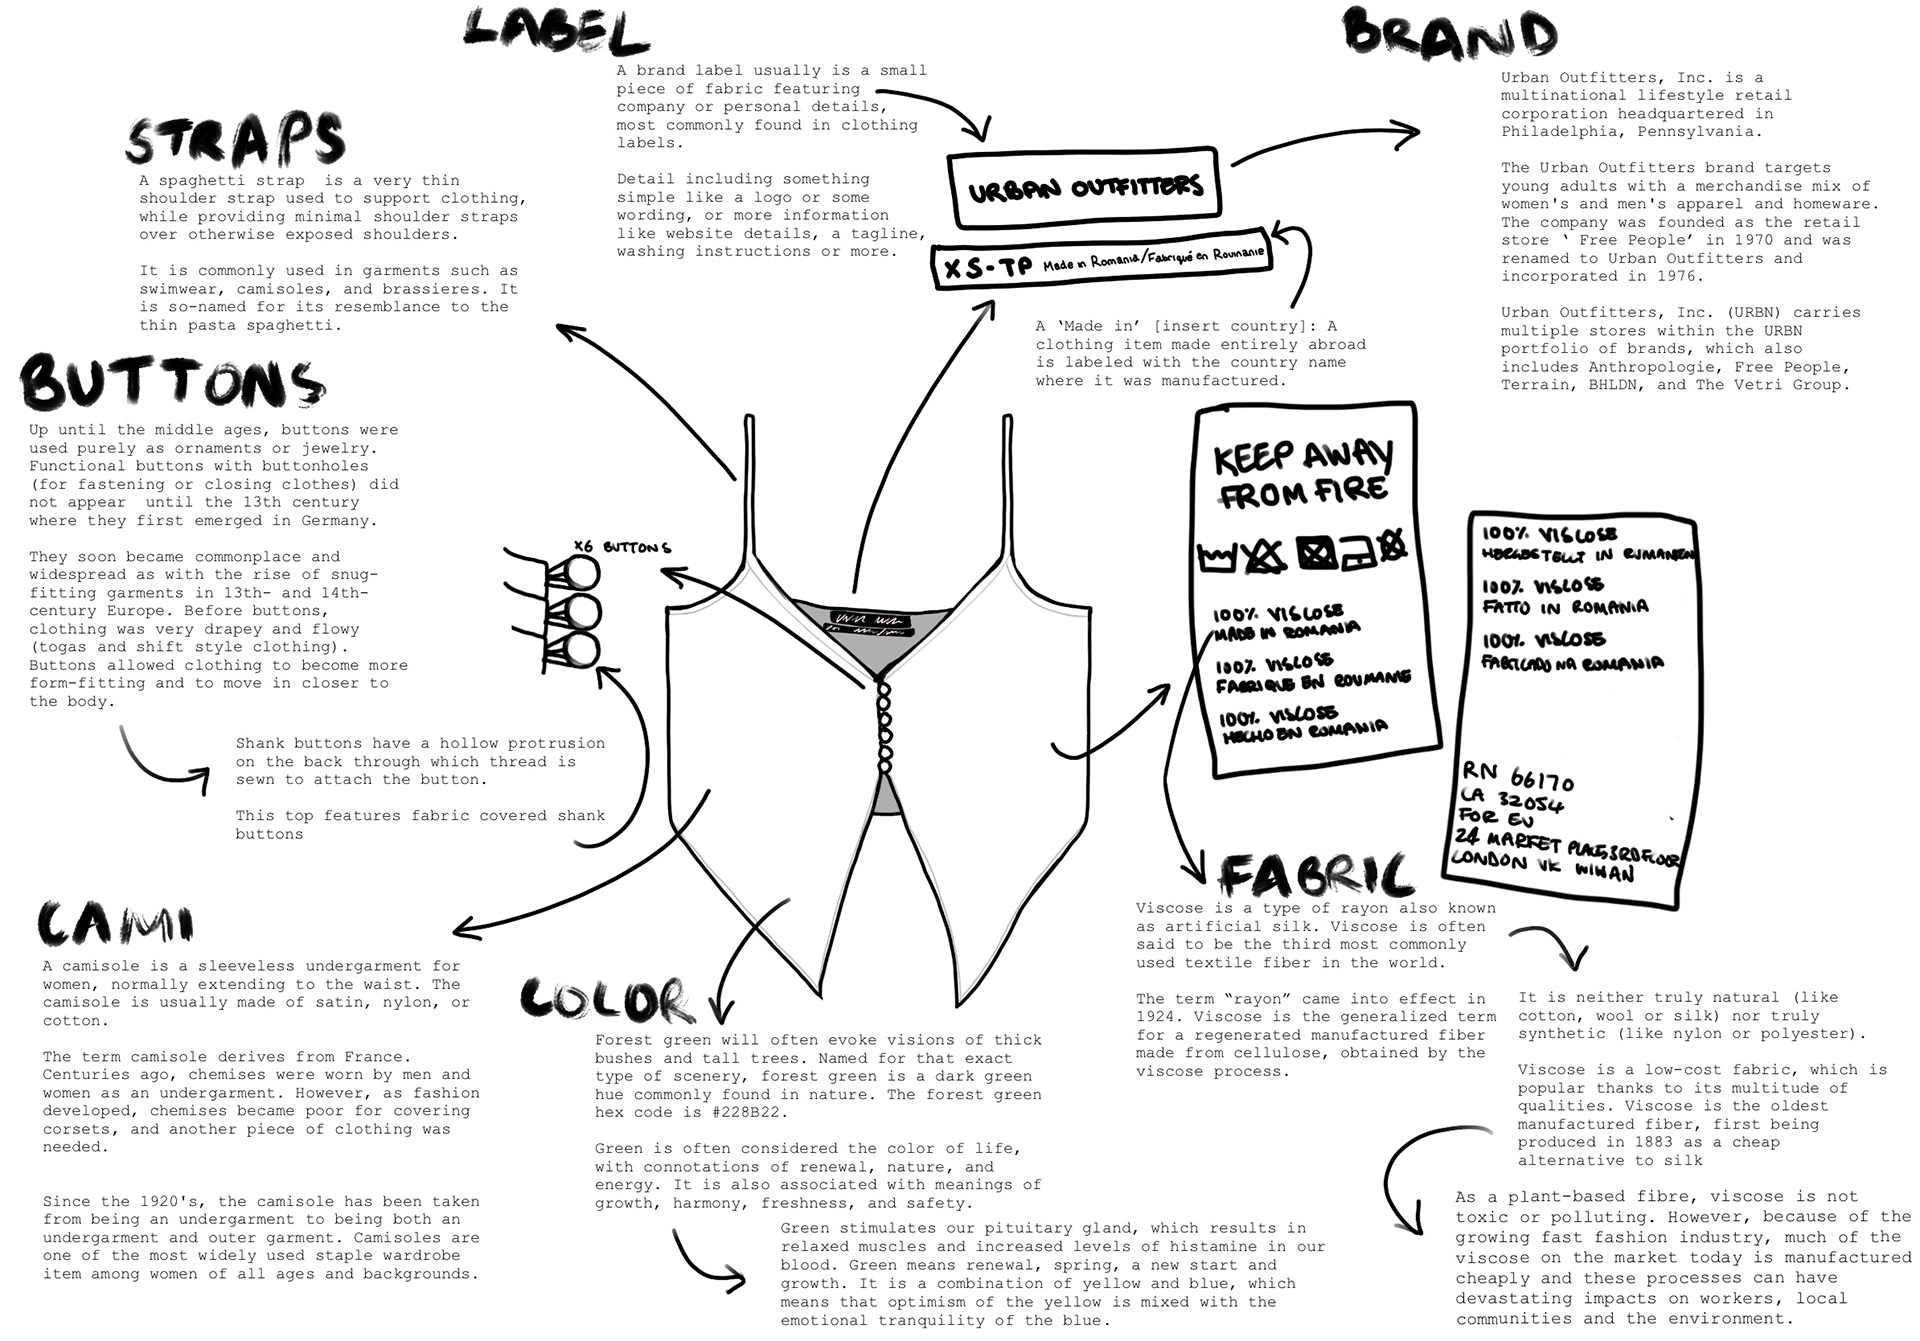 LABEL
A brand label usually is a small
piece of fabric featuring
company or personal details,
most commonly found in clothing
labels.
Detail including something
simple like a logo or some
wording, or more information
like website details, a tagline,
washing instructions or more.
BRAND
Urban Outfitters, Inc. is a
multinational lifestyle retail
corporation headquartered in
Philadelphia, Pennsylvania.
The Urban Outfitters brand targets
young adults with a merchandise mix of
women's and men's apparel and homeware.
The company was founded as the retail
store ‘ Free People’ in 1970 and was
renamed to Urban Outfitters and
incorporated in 1976.
Urban Outfitters, Inc. (URBN) carries
multiple stores within the URBN
portfolio of brands, which also
includes Anthropologie, Free People,
Terrain, BHLDN, and The Vetri Group.
STRAPS
A spaghetti strap  is a very thin
shoulder strap used to support clothing,
while providing minimal shoulder straps
over otherwise exposed shoulders.
It is commonly used in garments such as
swimwear, camisoles, and brassieres. It
is so-named for its resemblance to the
thin pasta spaghetti.
URBAN OUTFITTERS
XS-TP Made in Romania/Fabriqué en Roumanie
A ‘Made in’ [insert country]: A
clothing item made entirely abroad
is labeled with the country name
where it was manufactured.
BUTTONS
Up until the middle ages, buttons were
used purely as ornaments or jewelry.
Functional buttons with buttonholes
(for fastening or closing clothes) did
not appear  until the 13th century
where they first emerged in Germany.
They soon became commonplace and
widespread as with the rise of snug-
fitting garments in 13th- and 14th-
century Europe. Before buttons,
clothing was very drapey and flowy
(togas and shift style clothing).
Buttons allowed clothing to become more
form-fitting and to move in closer to
the body.
X6 BUTTONS
Shank buttons have a hollow protrusion
on the back through which thread is
sewn to attach the button.
This top features fabric covered shank
buttons
KEEP AWAY
FROM FIRE
100% VISCOSE
MADE IN ROMANIA
100% VISCOSE
FABRIQUE EN ROUMANIE
100% VISCOSE
HECHO EN ROMANIA
100% VISCOSE
HERGESTELLT IN RUMANIEN
100% VISCOSE
FATTO IN ROMANIA
100% VISCOSE
FABRICADO NA ROMANIA
RN 66170
CA 32054
FOR EU
24 MARKET PLACE, 3RD FLOOR
LONDON UK W1WAN
CAMI
A camisole is a sleeveless undergarment for
women, normally extending to the waist. The
camisole is usually made of satin, nylon, or
cotton.
The term camisole derives from France.
Centuries ago, chemises were worn by men and
women as an undergarment. However, as fashion
developed, chemises became poor for covering
corsets, and another piece of clothing was
needed.
Since the 1920's, the camisole has been taken
from being an undergarment to being both an
undergarment and outer garment. Camisoles are
one of the most widely used staple wardrobe
item among women of all ages and backgrounds.
COLOR
Forest green will often evoke visions of thick
bushes and tall trees. Named for that exact
type of scenery, forest green is a dark green
hue commonly found in nature. The forest green
hex code is #228B22.
Green is often considered the color of life,
with connotations of renewal, nature, and
energy. It is also associated with meanings of
growth, harmony, freshness, and safety.
Green stimulates our pituitary gland, which results in
relaxed muscles and increased levels of histamine in our
blood. Green means renewal, spring, a new start and
growth. It is a combination of yellow and blue, which
means that optimism of the yellow is mixed with the
emotional tranquility of the blue.
FABRIC
Viscose is a type of rayon also known
as artificial silk. Viscose is often
said to be the third most commonly
used textile fiber in the world.
The term “rayon” came into effect in
1924. Viscose is the generalized term
for a regenerated manufactured fiber
made from cellulose, obtained by the
viscose process.
It is neither truly natural (like
cotton, wool or silk) nor truly
synthetic (like nylon or polyester).
Viscose is a low-cost fabric, which is
popular thanks to its multitude of
qualities. Viscose is the oldest
manufactured fiber, first being
produced in 1883 as a cheap
alternative to silk
As a plant-based fibre, viscose is not
toxic or polluting. However, because of the
growing fast fashion industry, much of the
viscose on the market today is manufactured
cheaply and these processes can have
devastating impacts on workers, local
communities and the environment.